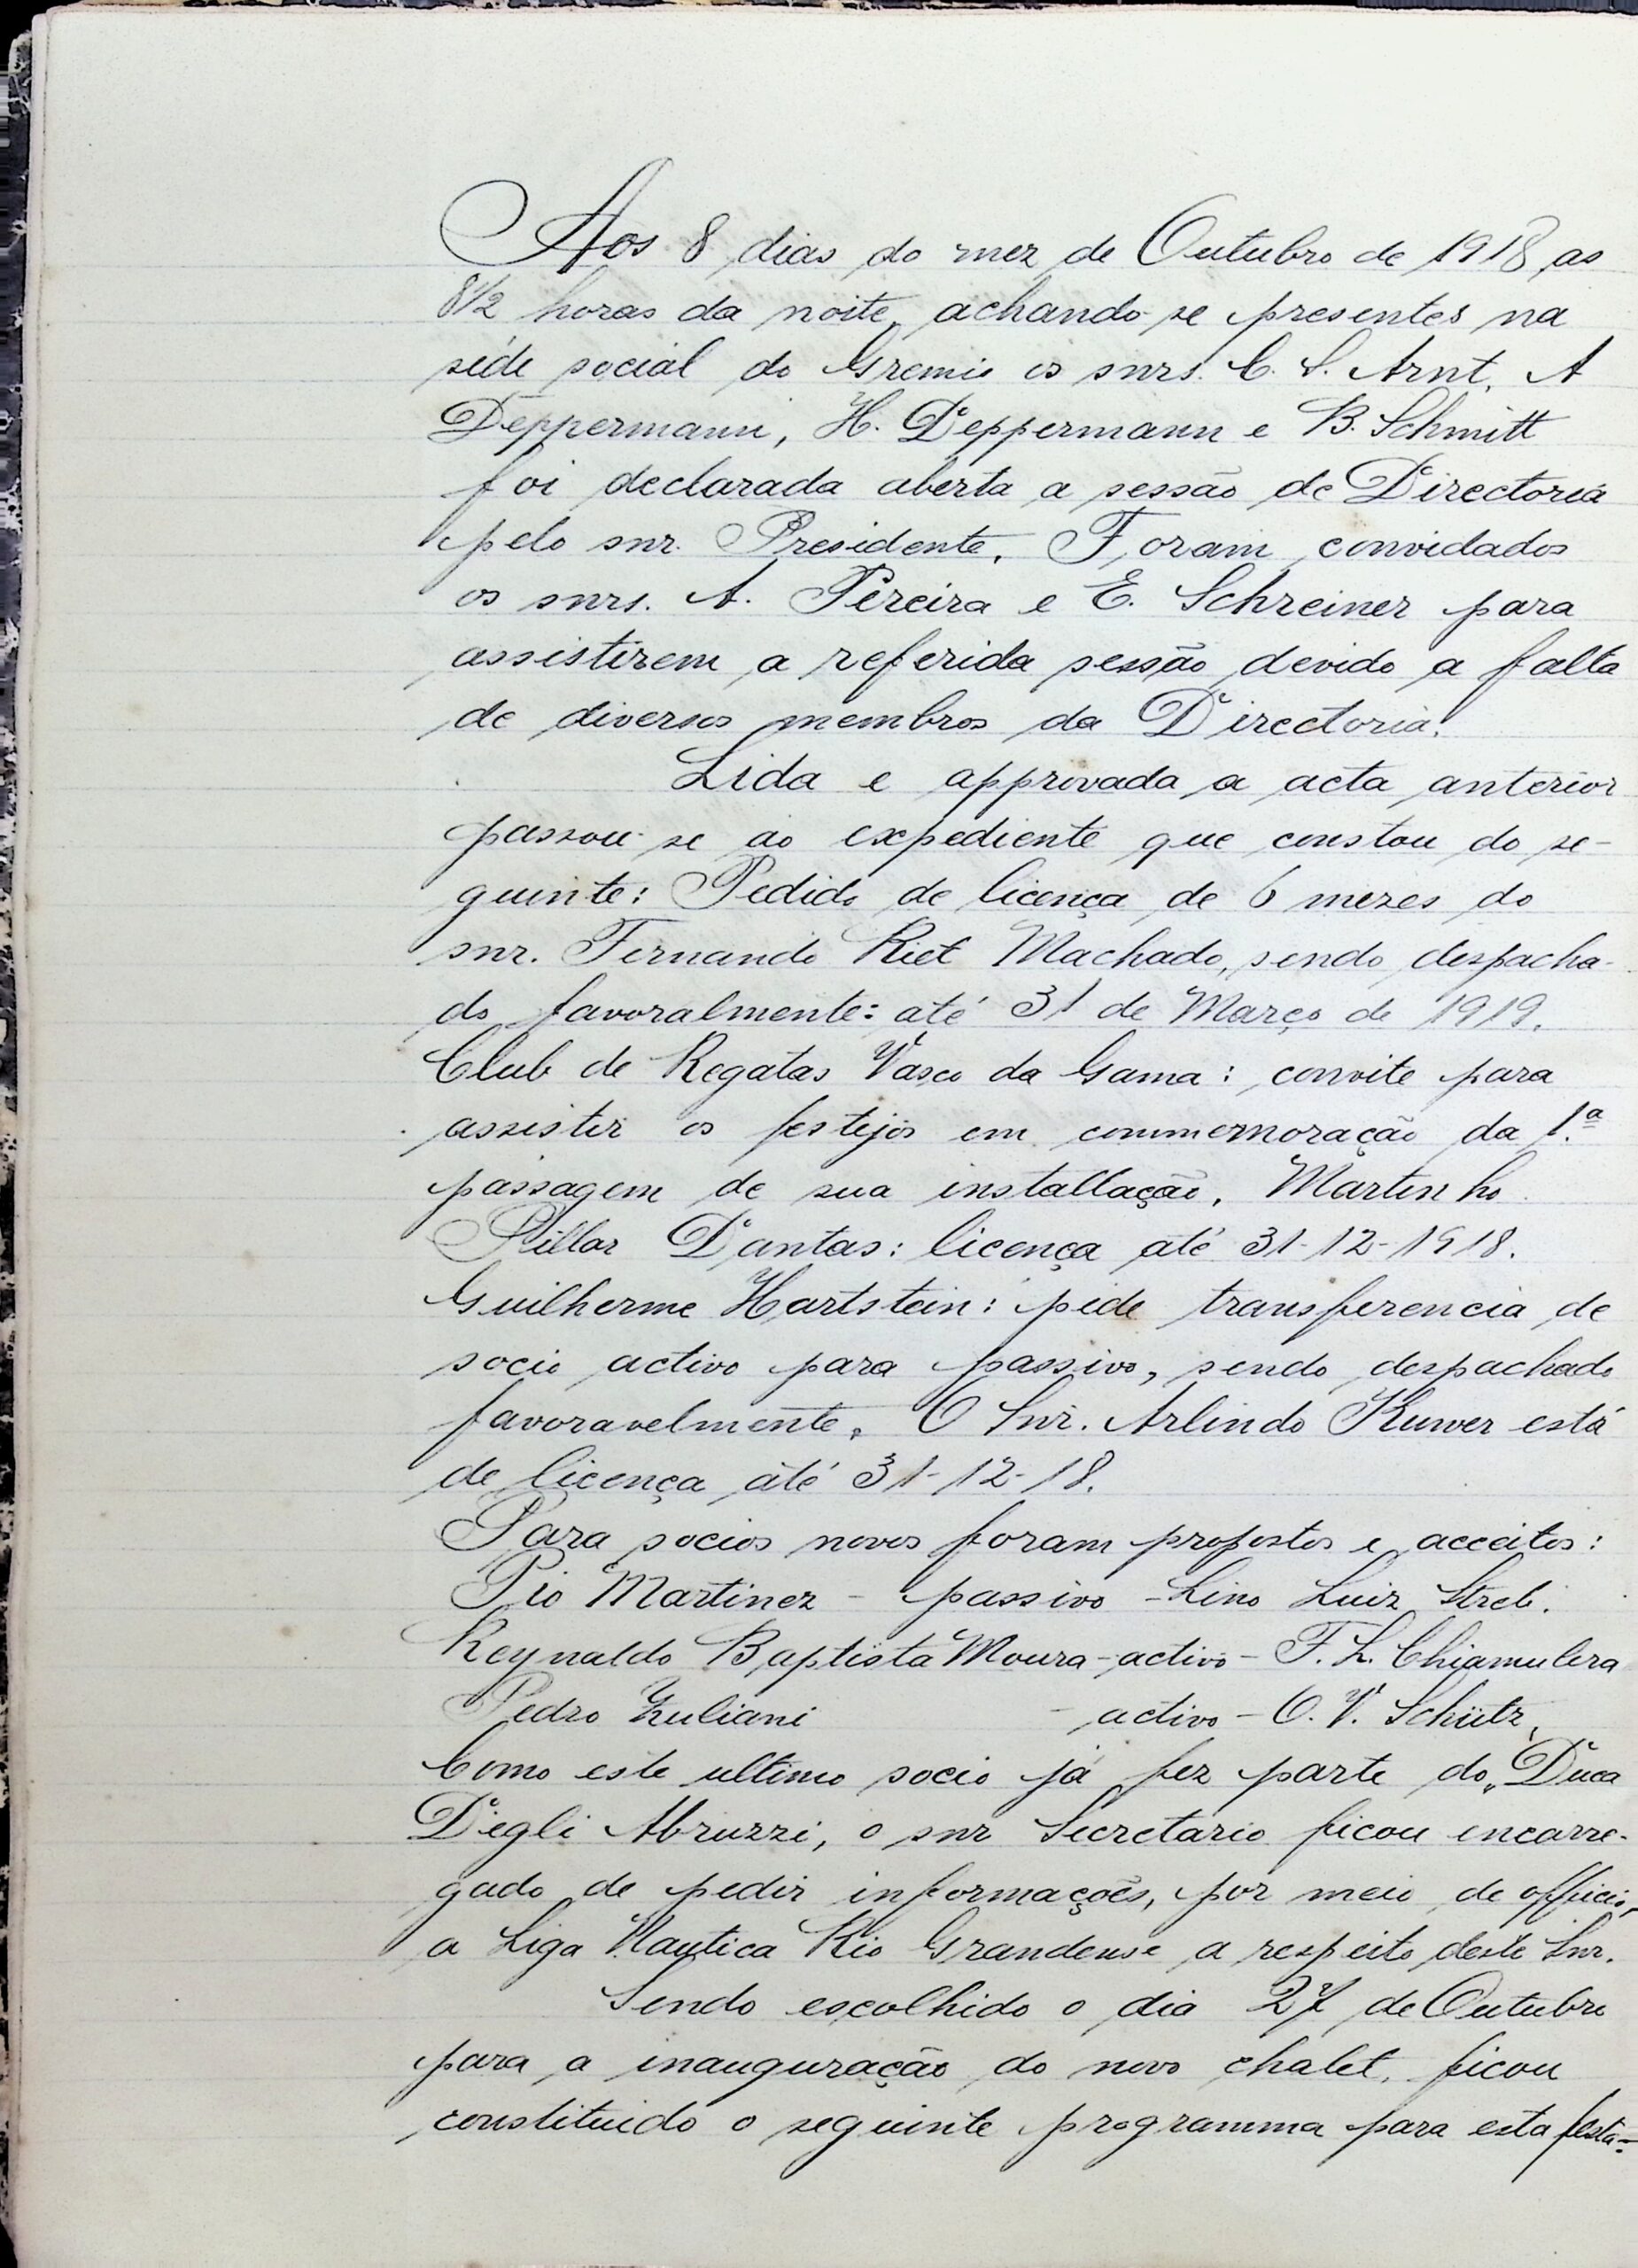 Aos 8 dias do mez de Outubro de 1918 as
8 1/2 horas da noite, achando-se presentes na
séde social do Gremio os snrs. C. S. Arnt, A
Deppermann, H. Deppermann e B. Schmitt
foi declarada aberta a sessão de Directoria
pelo snr. Presidente. Foram convidados
os snrs. A. Pereira e E. Schreiner para
assistirem a referida sessão devido a falta
de diversos membros da Directoria.
Lida e approvada a acta anterior
passou-se ao expediente que constou do se-
guinte: Pedido de licença de 6 mezes do
snr. Fernando Riet Machado, sendo despacha-
do favoralmente: até 31 de Março de 1919.
Club de Regatas Vasco da Gama: convite para
assistir os festejos em commemoração da 1.ª
passagem de sua installação. Martinho
Pillar Dantas: licença até 31-12-1918.
Guilherme Hartstein: pede transferencia de
socio activo para passivo, sendo despachado
favoravelmente. O Snr. Arlindo Kuwer está
de licença até 31-12-18.
Para socios novos foram propostos e acceitos:
Pio Martinez - passivo - Lino Luiz Streb.
Reynaldo Baptista Moura - activo - F. L. Chiamulera
Pedro Zuliani - activo - O. V. Schütz,
Como este ultimo socio já fez parte do „Duca
Degli Abruzzi, o snr Secretario ficou encarre-
gado de pedir informações, por meio de officio,
a Liga Nautica Rio Grandense a respeito deste Snr.
Sendo escolhido o dia 27 de Outubro
para a inauguração do novo chalet, ficou
constituido o seguinte programma para esta festa: